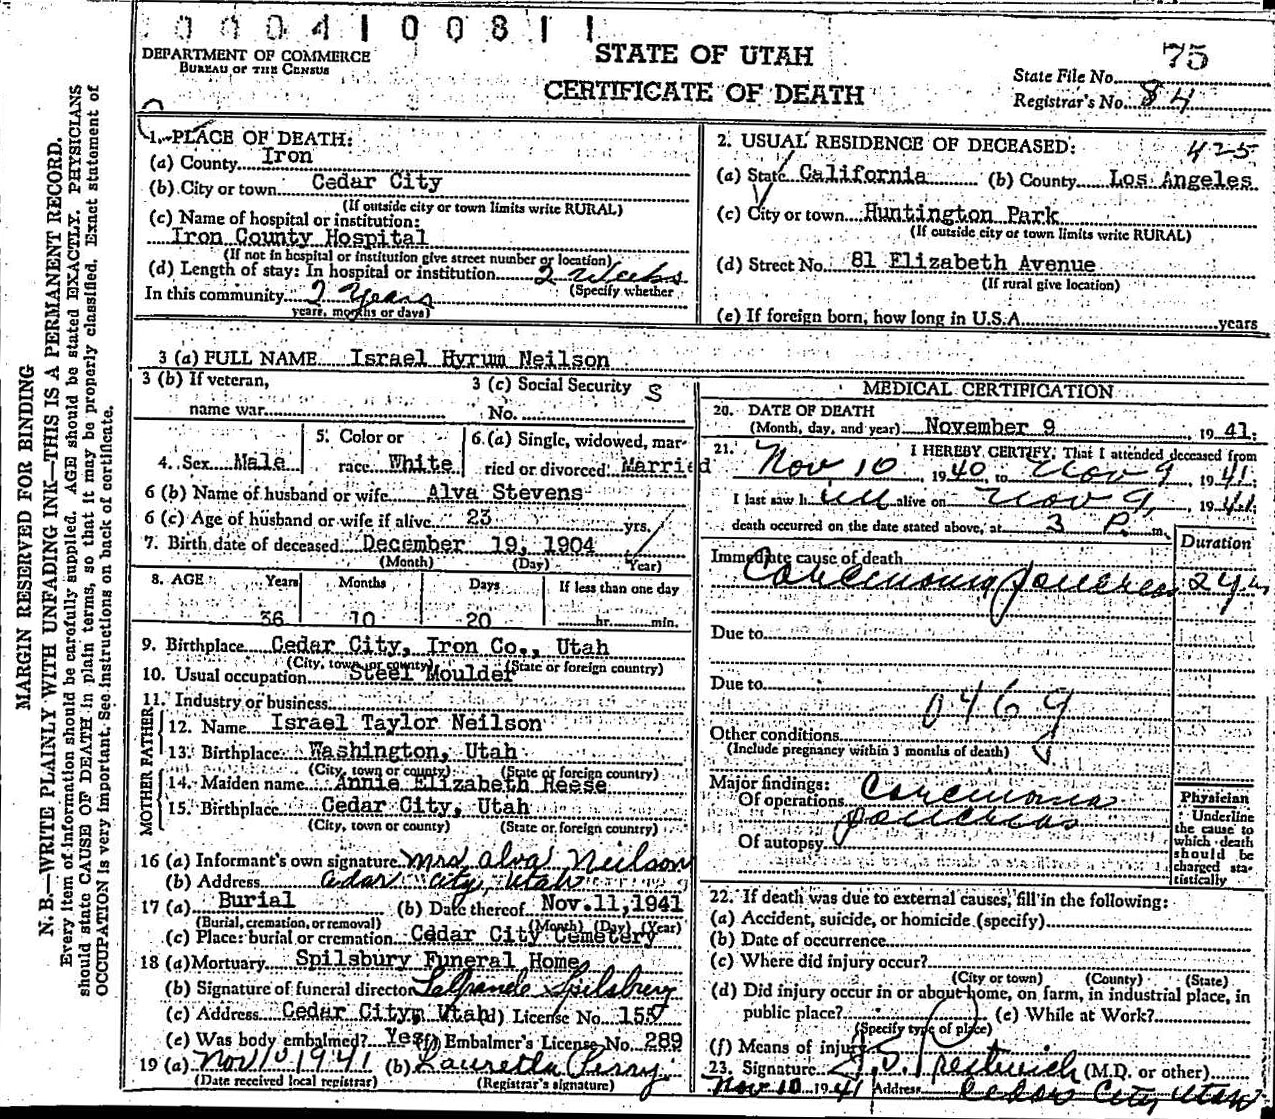 0404100811
DEPARTMENT OF COMMERCE
BUREAU OF THE CENSUS
STATE OF UTAH
CERTIFICATE OF DEATH
75
State File No.
Registrar's No. 84
MARGIN RESERVED FOR BINDING
N. B.—WRITE PLAINLY WITH UNFADING INK—THIS IS A PERMANENT RECORD.
Every item of information should be carefully supplied. AGE should be stated EXACTLY. PHYSICIANS
should state CAUSE OF DEATH in plain terms, so that it may be properly classified. Exact statement of
OCCUPATION is very important. See instructions on back of certificate.
1. PLACE OF DEATH:
(a) County Iron
(b) City or town Cedar City
(If outside city or town limits write RURAL)
(c) Name of hospital or institution:
Iron County Hospital
(If not in hospital or institution give street number or location)
(d) Length of stay: In hospital or institution 2 weeks
(Specify whether
In this community 2 Years
years, months or days)
2. USUAL RESIDENCE OF DECEASED: 425
(a) State California (b) County Los Angeles
(c) City or town Huntington Park
(If outside city or town limits write RURAL)
(d) Street No. 81 Elizabeth Avenue
(If rural give location)
(e) If foreign born, how long in U.S.A. years
3 (a) FULL NAME Israel Hyrum Neilson
3 (b) If veteran,
name war
3 (c) Social Security S
No.
4. Sex Male
5. Color or
race White
6.(a) Single, widowed, mar-
ried or divorced Married
6 (b) Name of husband or wife Alva Stevens
6 (c) Age of husband or wife if alive 23 yrs.
7. Birth date of deceased December 19, 1904
(Month) (Day) (Year)
8. AGE Years Months Days If less than one day
36 10 20 hr. min.
9. Birthplace Cedar City, Iron Co., Utah
(City, town or county) (State or foreign country)
10. Usual occupation Steel Moulder
11. Industry or business
FATHER
12. Name Israel Taylor Neilson
13. Birthplace Washington, Utah
(City, town or county) (State or foreign country)
MOTHER
14. Maiden name Annie Elizabeth Reese
15. Birthplace Cedar City, Utah
(City, town or county) (State or foreign country)
16 (a) Informant's own signature Mrs Alva Neilson
(b) Address Cedar City, Utah
17 (a) Burial (b) Date thereof Nov.11,1941
(Burial, cremation, or removal) (Month) (Day) (Year)
(c) Place: burial or cremation Cedar City Cemetery
18 (a) Mortuary Spilsbury Funeral Home
(b) Signature of funeral director LaGrande Spilsbury
(c) Address Cedar City, Utah (d) License No. 155
(e) Was body embalmed? Yes (f) Embalmer's License No. 289
19 (a) Nov 10 1941 (b) Lauretta Perry
(Date received local registrar) (Registrar's signature)
MEDICAL CERTIFICATION
20. DATE OF DEATH
(Month, day, and year) November 9, 1941;
21. I HEREBY CERTIFY, That I attended deceased from
Nov 10, 1940, to Nov 9, 1941;
I last saw him alive on Nov 9, 1941;
death occurred on the date stated above, at 3 P. m.
Duration
Immediate cause of death
Carcinoma Pancreas 2 yrs
Due to
Due to
0469
Other conditions
(Include pregnancy within 3 months of death)
Major findings:
Of operations Carcinoma
pancreas
Of autopsy
Physician
Underline
the cause to
which death
should be
charged sta-
tistically
22. If death was due to external causes, fill in the following:
(a) Accident, suicide, or homicide (specify)
(b) Date of occurrence
(c) Where did injury occur?
(City or town) (County) (State)
(d) Did injury occur in or about home, on farm, in industrial place, in
public place? (e) While at Work?
(Specify type of place)
(f) Means of injury
23. Signature (M.D. or other)
Nov 10 1941 Address Cedar City Utah